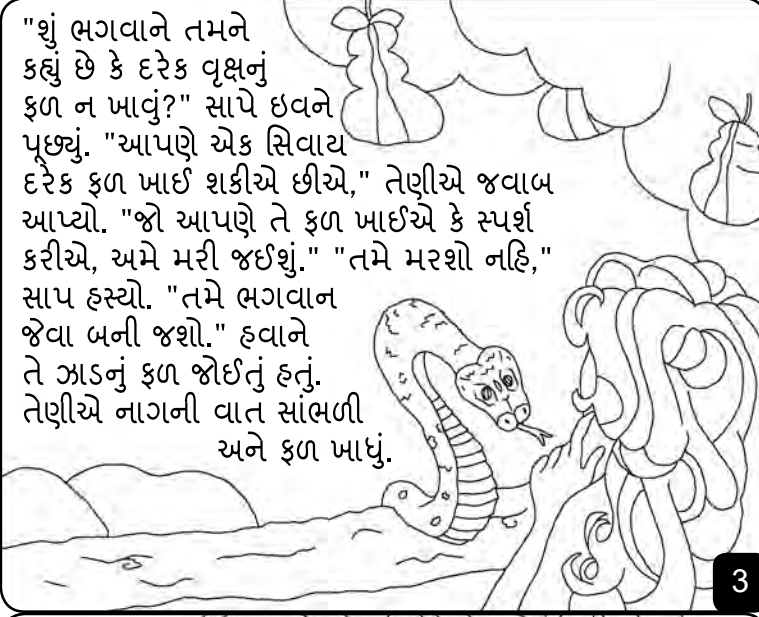 "શું ભગવાને તમને
કહ્યું છે કે દરેક વૃક્ષનું
ફળ ન ખાવું?" સાપે ઇવને
પૂછ્યું. "આપણે એક સિવાય
દરેક ફળ ખાઈ શકીએ છીએ," તેણીએ જવાબ
આપ્યો. "જો આપણે તે ફળ ખાઈએ કે સ્પર્શ
કરીએ, અમે મરી જઈશું." "તમે મરશો નહિ,"
સાપ હસ્યો. "તમે ભગવાન
જેવા બની જશો." હવાને
તે ઝાડનું ફળ જોઈતું હતું.
તેણીએ નાગની વાત સાંભળી
અને ફળ ખાધું.
3